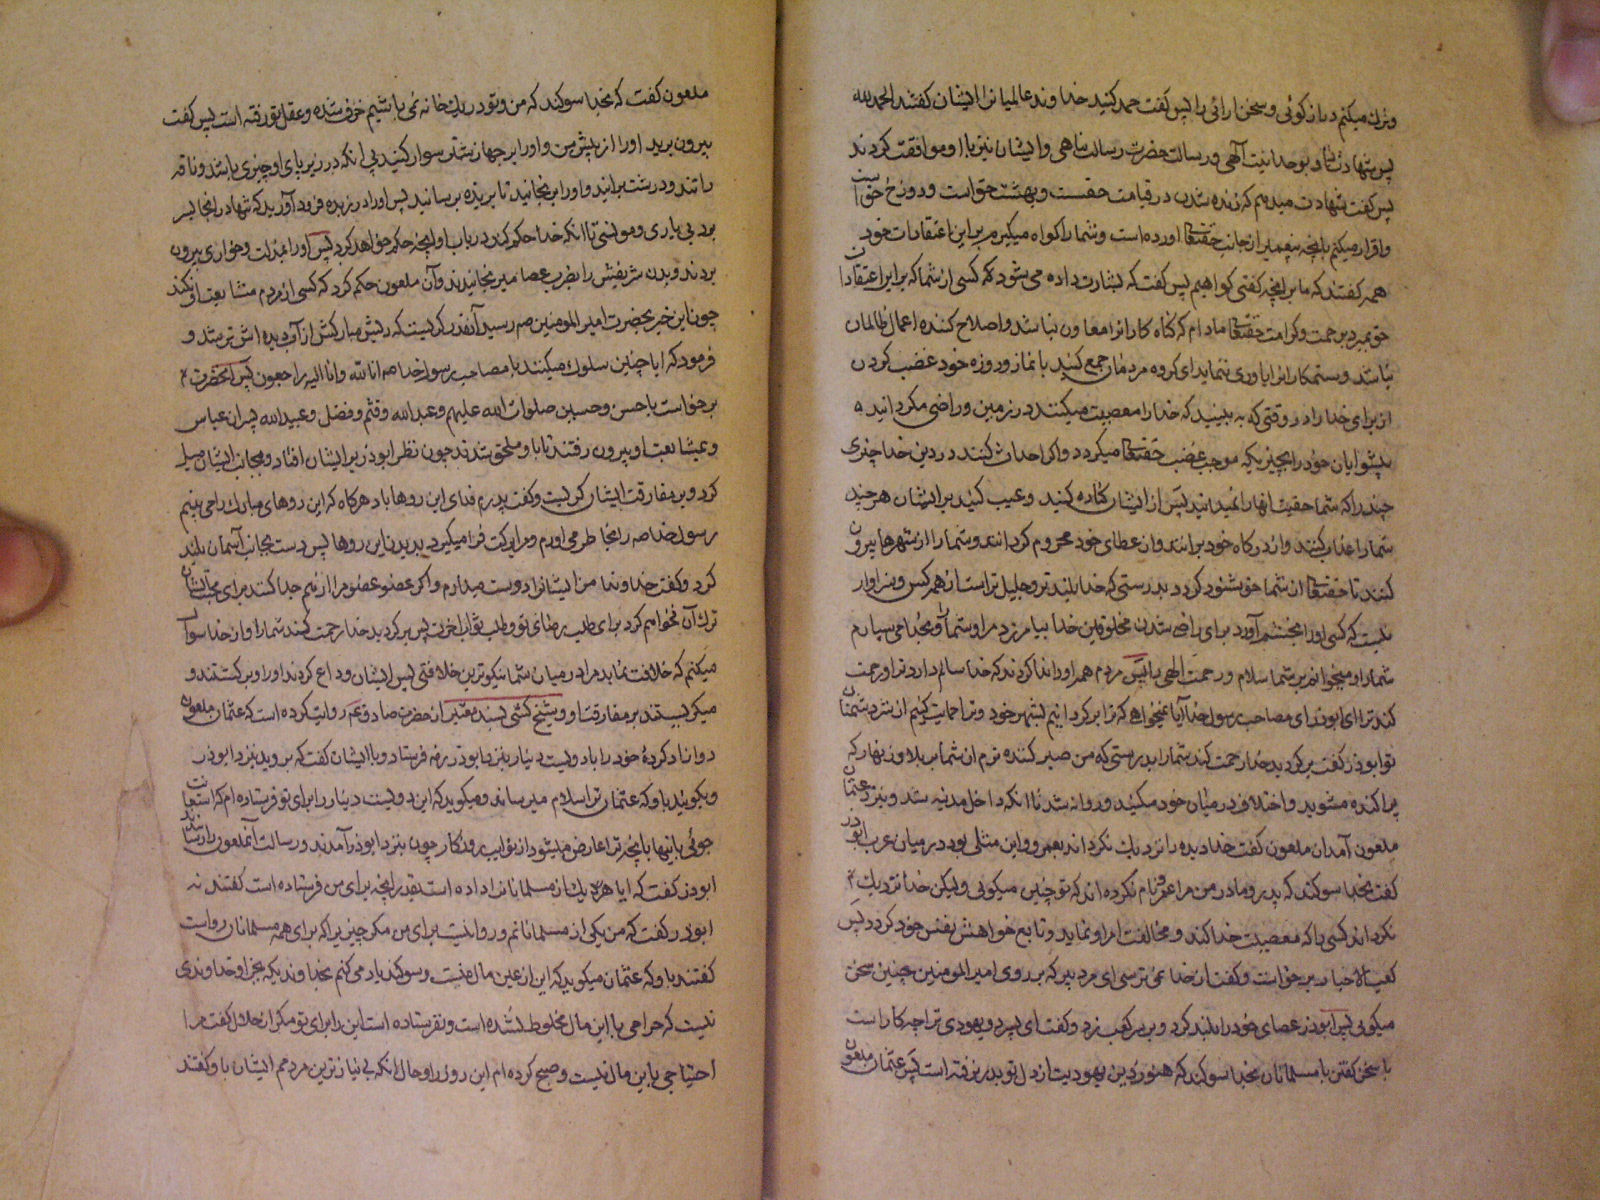 وترك میکنم درازکوئی و سخن ارائی را پس کفت حمد کنید خداوند عالمیانرا ایشان کفتند الحمد لله
پس شهادت داد بوحدانیت آلهی و رسالت حضرت رسالت پناهی و ایشان نیز با او موافقت کردند
پس کفت شهادت میدهم که زنده شدن در قیامت حقست و بهشت حق است و دوزخ حق است
و اقرار میکنم بانچه پیغمبر از جانب حقتعا اورده است و شما را کواه میکیرم بر این اعتقادات خود
همه کفتند که ما بر انچه کفتی کواهیم پس کفت که بشارت داده می شود که کسی از شما که بر این اعتقادات
خو بمیرد برحمت و کرامت حقتعا مادام که کناه کارانرا معاون نباشد و اصلاح کننده اعمال ظالمان
نباشد و ستمکارانرا یاوری ننماید ای کروه مردمان جمع کنید با نماز و روزه خود غضب کردن
از برای خدا را در وقتی که به بینید که خدا را معصیت میکنند در زمین و راضی مکردانید
پیشوایان خود را بچیزیکه موجب غضب حقتعا میکردد و اکر احداث کنند در دین خدا چیزی
چند را که شما حقیقت انها را نمیدانید پس از ایشان کناره کنید و عیب کنید بر ایشان هر چند
شما را عذاب کنند و از درکاه خود برانند و از عطای خود محروم کردانند و شما را از شهرها بیرون
کنند تا حقتعا از شما خوشنود کردد بدرستی که خدا بلندتر و جلیل تر است از همه کس و سزاوار
نیست که کسی او را بخشم آورد برای راضی شدن مخلوقین خدا بیامرزد مرا و شما را و بخدا می سپارم
شما را و میخوانم بر شما سلام و رحمت الهی را پس مردم همه او را ندا کردند که خدا سالم دارد ترا و رحمت
کند ترا ای ابوذر ای مصاحب رسول خدا آیا نمیخواهی که ترا بر کردانیم بشهر خود و ترا حمایت کنیم از شر دشمنان
تو ابوذر کفت بر کردید خدا رحمت کند شما را بدرستی که من صبر کننده ترم از شما بر بلا و زنهار که
پراکنده مشوید و اختلاف در میان خود مکنید و روانه شد تا انکه داخل مدینه شد و بنزد عثمان
ملعون آمد ان ملعون کفت خدا دیده را نزدیك نکرداند بعمرو و این مثلی بود در میان عرب ابوذر
کفت بخدا سوکند که پدر و مادر من مرا عمرو نام نکرده اند که تو چنین میکوئی ولیکن خدا نزدیك
نکرداند کسی را که معصیت خدا کند و مخالفت امر او نماید و تابع خواهش نفس خود کردد پس
کعب الاحبار برخواست و کفت از خدا نمی ترسی ای مرد پیر که بر روی امیر المومنین چنین سخن
میکوئی پس ابوذر عصای خود را بلند کرد و بر سر کعب زد و کفت ای پسر دو یهودی ترا چه کار است
با سخن کفتن با مسلمانان بخدا سوکند که هنوز دین یهودیت از دل تو بدر نرفته است پس عثمان ملعون
ملعون کفت که بخدا سوکند که من و تو در یك خانه نمی باشیم خرف شده و عقل تو رفته است پس کفت
بیرون برید او را از پیش من و او را بر جهاز شتر سوار کنید بی انکه در زیر پای او چیزی باشد و ناقه
را تند و درشت برانید و او را برنجانید تا بربذه برسانید پس او را در ربذه فرود آورید که تنها در انجا بسر
برد بی یاری و مونسی تا انکه خدا حکم کند در باب او انچه حکم خواهد کرد پس او را بمذلت و خواری بیرون
بردند و بدن شریفش را بضرب عصا میرنجانیدند و آن ملعون حکم کرد که کسی از مردم مشایعت او نکند
چون این خبر بحضرت امیر المومنین ص رسید آنقدر کریست که ریش مبارکش از آب دیده اش تر شد و
فرمود که ایا چنین سلوك میکنند با مصاحب رسول خدا صه انا لله و انا الیه راجعون پس آنحضرت
برخواست با حسن و حسین صلوات الله علیهم و عبد الله و قثم و فضل و عبید الله پسران عباس
و بمشایعت او بیرون رفتند تا باو ملحق شدند چون نظر ابوذر بر ایشان افتاد و بجانب ایشان میل
کرد و بر مفارقت ایشان کریست و کفت پدرم فدای این روها باد هر کاه که این روهای مبارك را می بینم
رسول خدا صه را بخاطر می اورم و مرا برکت فرا میکیرد بدیدن این روها پس دست بجانب آسمان بلند
کرد و کفت خداوندا من ایشانرا دوست میدارم و اکر عضو عضو مرا از هم جدا کنند برای محبت ایشان
ترك آن نخواهم کرد برای طلب رضای تو و طلب ثواب اخرت پس بر کردید خدا رحمت کند شما را و از خدا سوال
میکنم که خلافت نماید مرا در میان شما نیکوترین خلافتی پس ایشان وداع کردند او را و بر کشتند و
میکریستند بر مفارقت او و شیخ کشی بسند معتبر از حضرت صادق ع م روایت کرده است که عثمان ملعون
دو ازاد کردهٔ خود را با دویست دینار بنزد ابوذر رضه فرستاد و با ایشان کفت که بروید بنزد ابوذر
و بکوئید باو که عثمان ترا سلام میرساند و میکوید که این دویست دینار را برای تو فرستاده ام که استعانت
جوئی بانها بانچه ترا عارض میشود از نوایب روزکار چون بنزد ابوذر آمدند و رسالت آنملعون را رسانیدند
ابوذر کفت که ایا هر یك از مسلمانانرا داده است بقدر انچه برای من فرستاده است کفتند نه
ابوذر کفت که من یکی از مسلمانانم و روا نیست برای من مکر چیزیرا که برای همه مسلمانان رواست
کفتند باو که عثمان میکوید که این از عین مال منست و سوکند یاد می کنم بخداوندیکه بجز او خداوندی
نیست که حرامی با این مال مخلوط نشده است و نفرستاده است این را برای تو مکر از حلال کفت مرا
احتیاجی باین مال نیست و صبح کرده ام این روز را و حال انکه بی نیازترین مردمم ایشان باو کفتند